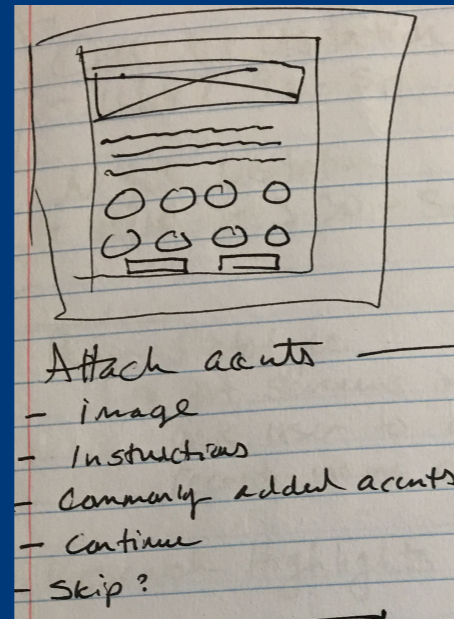 Attach accnts
- image
- Instructions
- Commonly added accnts
- Continue
- Skip?